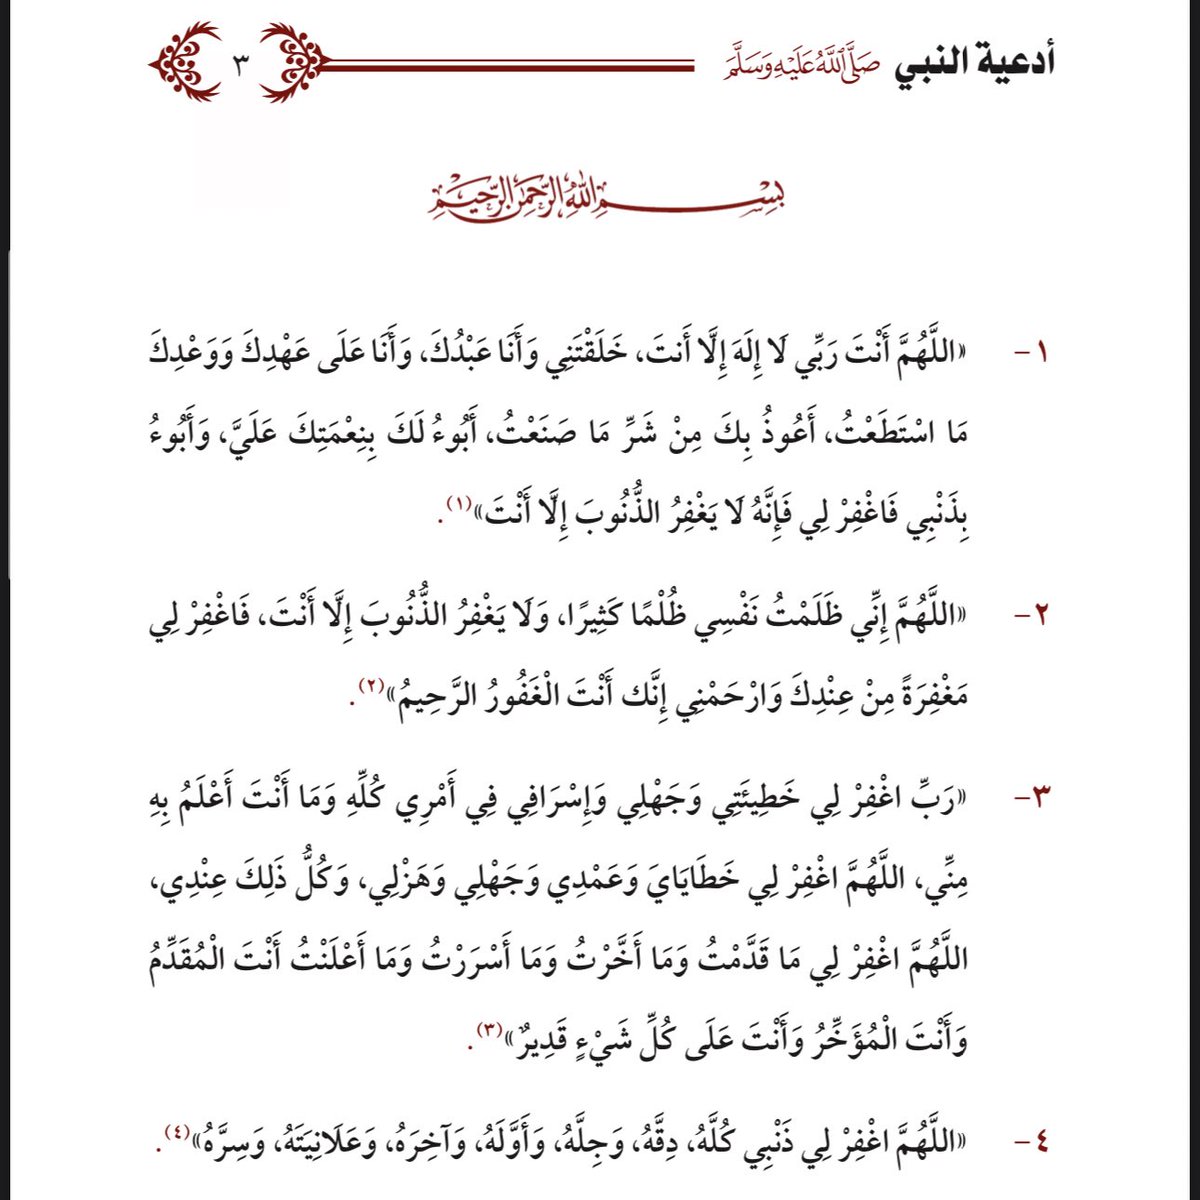 أدعية النبي صَلَّى اللَّهُ عَلَيْهِ وَسَلَّمَ ٣
بِسْمِ اللَّهِ الرَّحْمَنِ الرَّحِيمِ
١- «اللَّهُمَّ أَنْتَ رَبِّي لَا إِلَهَ إِلَّا أَنتَ، خَلَقْتَنِي وَأَنَا عَبْدُكَ، وَأَنَا عَلَى عَهْدِكَ وَوَعْدِكَ
مَا اسْتَطَعْتُ، أَعُوذُ بِكَ مِنْ شَرِّ مَا صَنَعْتُ، أَبُوءُ لَكَ بِنِعْمَتِكَ عَلَيَّ، وَأَبُوءُ
بِذَنْبِي فَاغْفِرْ لِي فَإِنَّهُ لَا يَغْفِرُ الذُّنُوبَ إِلَّا أَنْتَ»(١).
٢- «اللَّهُمَّ إِنِّي ظَلَمْتُ نَفْسِي ظُلْمًا كَثِيرًا، وَلَا يَغْفِرُ الذُّنُوبَ إِلَّا أَنْتَ، فَاغْفِرْ لِي
مَغْفِرَةً مِنْ عِنْدِكَ وَارْحَمْنِي إِنَّك أَنْتَ الْغَفُورُ الرَّحِيمُ»(٢).
٣- «رَبِّ اغْفِرْ لِي خَطِيئَتِي وَجَهْلِي وَإِسْرَافِي فِي أَمْرِي كُلِّهِ وَمَا أَنْتَ أَعْلَمُ بِهِ
مِنِّي، اللَّهُمَّ اغْفِرْ لِي خَطَايَايَ وَعَمْدِي وَجَهْلِي وَهَزْلِي، وَكُلُّ ذَلِكَ عِنْدِي،
اللَّهُمَّ اغْفِرْ لِي مَا قَدَّمْتُ وَمَا أَخَّرْتُ وَمَا أَسْرَرْتُ وَمَا أَعْلَنْتُ أَنْتَ الْمُقَدِّمُ
وَأَنْتَ الْمُؤَخِّرُ وَأَنْتَ عَلَى كُلِّ شَيْءٍ قَدِيرٌ»(٣).
٤- «اللَّهُمَّ اغْفِرْ لِي ذَنْبِي كُلَّهُ، دِقَّهُ، وَجِلَّهُ، وَأَوَّلَهُ، وَآخِرَهُ، وَعَلَانِيَتَهُ، وَسِرَّهُ»(٤).